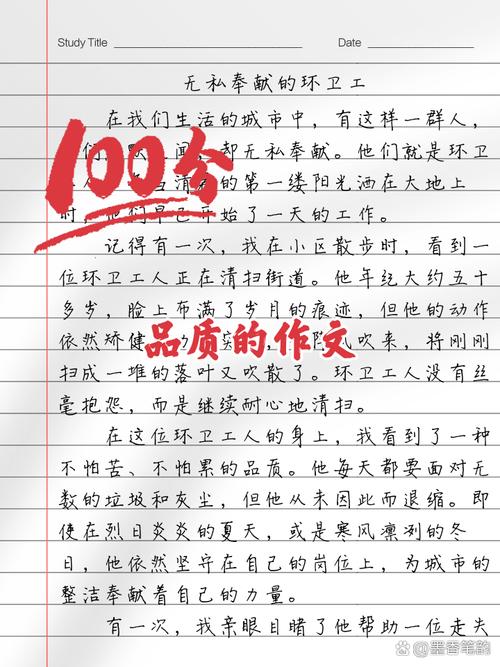 Study Title
Date
无私奉献的环卫工
在我们生活的城市中，有这样一群人，
们默闻，却无私奉献。他们就是环卫
人。当清的第一缕阳光洒在大地上
时，他们早已开始了一天的工作。
100分
记得有一次，我在小区散步时，看到一
位环卫工人正在清扫街道。他年纪大约五十
多岁，脸上布满了岁月的痕迹，但他的动作
依然矫健吹来，将刚刚
品质的作文
扫成一堆的落叶又吹散了。环卫工人没有丝
毫抱怨，而是继续耐心地清扫。
在这位环卫工人的身上，我看到了一种
不怕苦、不怕累的品质。他每天都要面对无
数的垃圾和灰尘，但他从未因此而退缩。即
使在烈日炎炎的夏天，或是寒风凛冽的冬
日，他依然坚守在自己的岗位上，为城市的
整洁奉献着自己的力量。
有一次，我亲眼目睹了他帮助一位走失
墨香笔韵